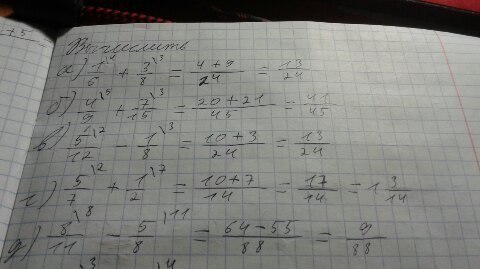 Вычислить
а) 1/6 \4 + 3/8 \3 = 4+9/24 = 13/24
б) 4/9 \5 + 7/15 \3 = 20+21/45 = 41/45
в) 5/12 \2 - 1/8 \3 = 10+3/24 = 13/24
г) 5/7 \2 + 1/2 \7 = 10+7/14 = 17/14 = 1 3/14
д) 8/11 \8 - 5/8 \11 = 64-55/88 = 9/88
\3 \4